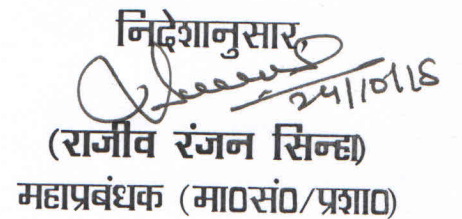 निदेशानुसार,
24/10/18
(राजीव रंजन सिन्हा)
महाप्रबंधक (मा0सं0/प्रशा0)